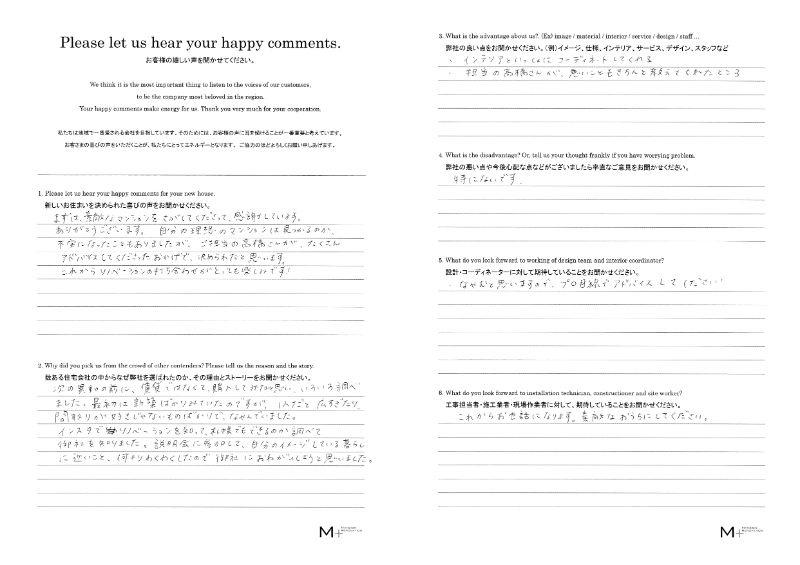 Please let us hear your happy comments.
お客様の嬉しい声を聞かせてください。
We think it is the most important thing to listen to the voices of our customers,
to be the company most beloved in the region.
Your happy comments make energy for us. Thank you very much for your cooperation.
私たちは地域で一番愛される会社を目指しています。そのためには、お客様の声に耳を傾けることが一番重要と考えています。
お客さまの喜びの声をいただくことが、私たちにとってエネルギーとなります。 ご協力のほどよろしくお願い申しあげます。
1. Please let us hear your happy comments for your new house.
新しいお住まいを決められた喜びの声をお聞かせください。
まずは、素敵なマンションをさがしてくださって、感謝しています。
ありがとうございます。 自分の理想のマンションは見つかるのか、
不安になったこともありましたが、ご担当の高橋さんが、たくさん
アドバイスしてくださったおかげで、決められたと思います。
これからリノベーションの打ち合わせがとっても楽しみです!
2. Why did you pick us from the crowd of other contenders? Please tell us the reason and the story.
数ある住宅会社の中からなぜ弊社を選ばれたのか、その理由とストーリーをお聞かせください。
次の異動の前に、賃貸ではなくて、購入してみたいと思い、いろいろ調べ
ました。最初は新築ばかりみていたのですが、1人だと広すぎたり、
間取りが好きじゃないものばかりで、なやんでいました。
インスタでリノベーションを知って、札幌でもできるのか調べて
御社を知りました。説明会に参加して、自分のイメージしている暮らし
に近いこと、何よりわくわくしたので御社におねがいしようと思いました。
M+
3. What is the advantage about us?. (Ex) image / material / interior / service / design / staff ...
弊社の良い点をお聞かせください。(例)イメージ、仕様、インテリア、サービス、デザイン、スタッフなど
・ インテリアといっしょにコーディネートしてくれる
・ 担当の高橋さんが、悪いこともきちんと教えてくれたところ
4. What is the disadvantage? Or, tell us your thought frankly if you have worrying problem.
弊社の悪い点や今後心配な点などがございましたら率直なご意見をお聞かせください。
特にないです。
5. What do you look forward to working of design team and interior coordinator?
設計・コーディネーターに対して期待していることをお聞かせください。
・ なやむと思いますので、プロ目線でアドバイスしてください!
6. What do you look forward to installation technician, constructioner and site worker?
工事担当者・施工業者・現場作業者に対して、期待していることをお聞かせください。
これからお世話になります。素敵なおうちにしてください。
M+